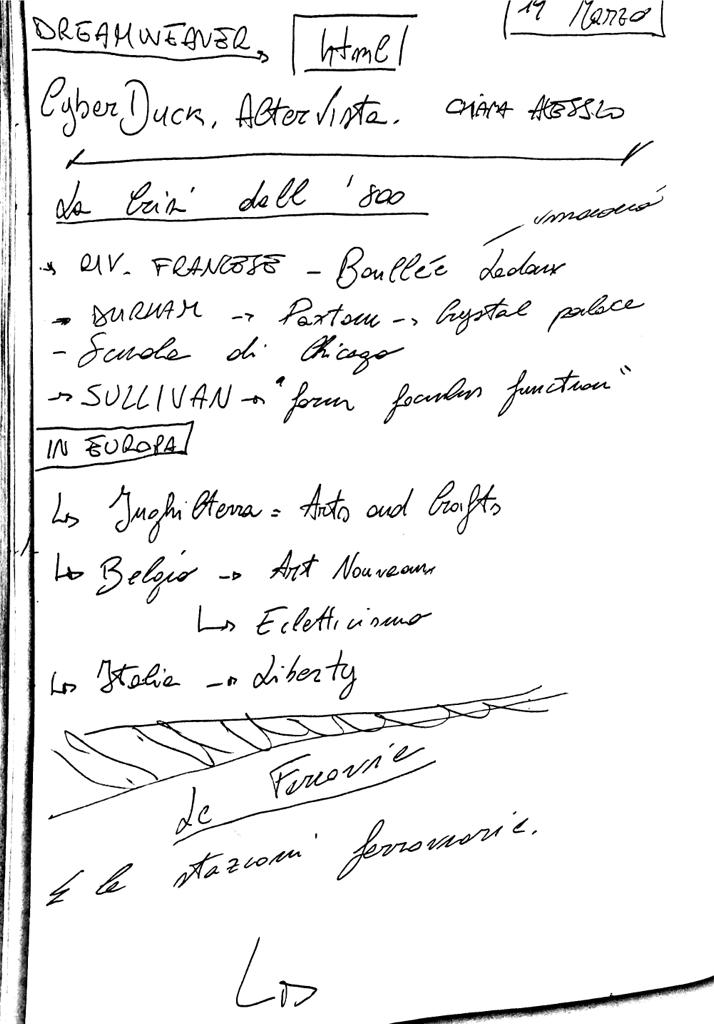 19 Marzo
DREAMWEAVER html
CyberDuck, AlterVista. CHIARA ALESSIO
La Crisi dell '800
RIV. FRANCESE - Boullée Ledoux
- DURHAM → Paxton → Crystal palace
- Scuola di Chicago
→ SULLIVAN → "form function"
IN EUROPA
↳ Inghilterra = Arts and Crafts
↳ Belgio → Art Nouveau
↳ Ecletticismo
↳ Italia → Liberty
Le Ferrovie
E le stazioni ferroviarie.